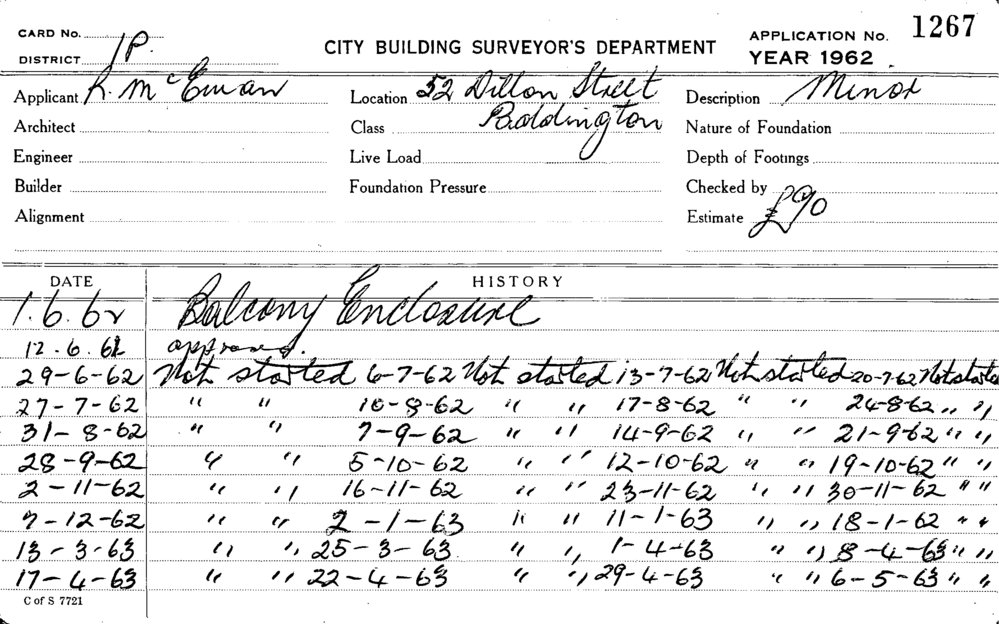 CARD No. 1P. CITY BUILDING SURVEYOR'S DEPARTMENT APPLICATION No. 1267
DISTRICT YEAR 1962
Applicant R. McEwan Location 52 Dillon Street Description Minor
Architect Class Paddington Nature of Foundation
Engineer Live Load Depth of Footings
Builder Foundation Pressure Checked by
Alignment Estimate £90
DATE HISTORY
1.6.62 Balcony Enclosure
12.6.62 approved.
29-6-62 Not started 6-7-62 Not started 13-7-62 Not started 20-7-62 Not started
27-7-62 " " 10-8-62 " " 17-8-62 " " 24-8-62 " "
31-8-62 " " 7-9-62 " " 14-9-62 " " 21-9-62 " "
28-9-62 " " 5-10-62 " " 12-10-62 " " 19-10-62 " "
2-11-62 " " 16-11-62 " " 23-11-62 " " 30-11-62 " "
7-12-62 " " 2-1-63 " " 11-1-63 " " 18-1-62 " "
13-3-63 " " 25-3-63 " " 1-4-63 " " 8-4-63 " "
17-4-63 " " 22-4-63 " " 29-4-63 " " 6-5-63 " "
C of S 7721